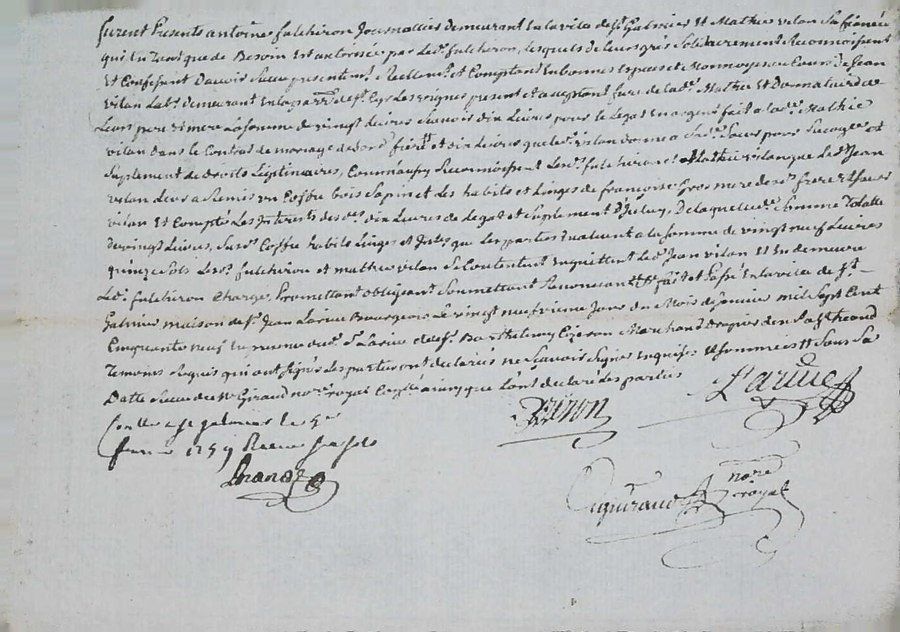 furent Presents antoine fulchiron Journallier demeurant en la ville de St Galmier et Mathie vilon sa
qui en tant que de Besoin est autorisée par led. fulchiron, lesquels de leurs grés solidairement Reconnoissent
Et Confessent D'avoir Receu presentemt Reellemt et Comptant en bonnes Especes et Monnoyes au Cours de Jean
vilon Labr demeurant en la parr. de St Cyr Les vignes present et acceptant frere de lad. Mathie Et Donnataire de
Leurs pere et mere La somme de vingt Livres sçavoir dix Livres pour le Legat en argent fait a lad. Mathie
vilon dans le Contrat de mariage de sond. frere et dix Livres que led. vilon donne a sad. soeur pour
suplement de droits Legitimaires, Comm'aussy Reconnoissent Lesd. fulchiron et Mathie vilon que led. Jean
vilon Leur a Remis un Coffre bois sapin et Les habits et Linges de françoise Gros mere desd. frere et soeur
vilon Et Compté Les Interets desd. dix Livres de Legat et suplement De laquelle somme Totalle
de vingt Livres, susd. Coffre habits Linges et que les parties Evaluent a la somme de vingt neuf Livres
quinze sols Lesd. fulchiron et mathie vilon se Contentent En quittent Led. Jean vilon Et En demeure
Led. fulchiron Chargé, Promettant obligeant soumettant Renonceant &a fait et Passé En la ville de St
Galmier maison de Sr Jean Larüe Bourgeois Le vingt neufvieme Jour du Mois de janvier mil Sept Cent
Cinquante neuf En presence dud. Sr Larue et de Sr Barthelemy Ezeron Marchand Drapier dud. St Galmier
Temoins Requis qui ont signés Les parties ont declarés ne sçavoir signer Enquises Et sommées Sous sa
Datte Giraud nore royal ainsy que L'ont declaré les parties
Larüe
Ezeron
Conllé a St galmier le
fevrier 1759 Receu
nore
Giraud royal